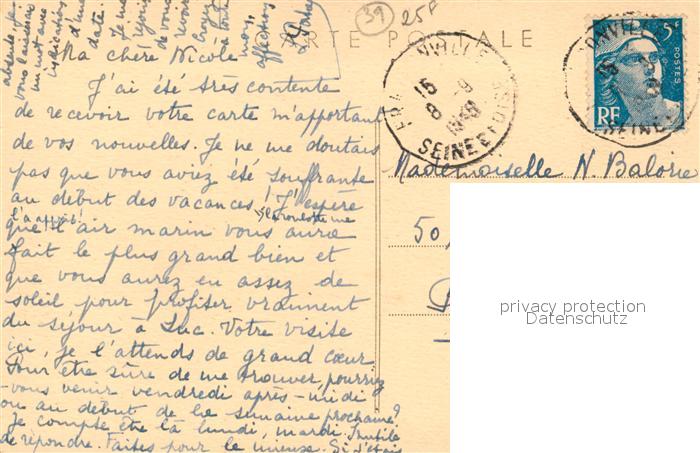 CARTE POSTALE
39
25F
Ma chère Nicole
J'ai été très contente
de recevoir votre carte m'apportant
de vos nouvelles. Je ne me doutais
pas que vous aviez été souffrante
au début des vacances! J'espère
que l'air marin vous aura
fait le plus grand bien et
que vous aurez eu assez de
soleil pour profiter vraiment
du séjour à Luc. Votre visite
ici, je l'attends de grand cœur
Pour être sûre de me trouver, pourriez
-vous venir vendredi après-midi
ou au début de la semaine prochaine?
Je compte être là lundi, mardi. Inutile
de répondre. Faites pour le mieux. Si j'étais
absente, je
vous laisserai
un mot avec
indication
d'une
date.
Je me
réjouis
de vous
revoir
Croyez
à toute
mon
affection
15
8 -9
SEINE ET OISE
5F
POSTES
RF
Mademoiselle N. Balorie
50,
privacy protection
Datenschutz